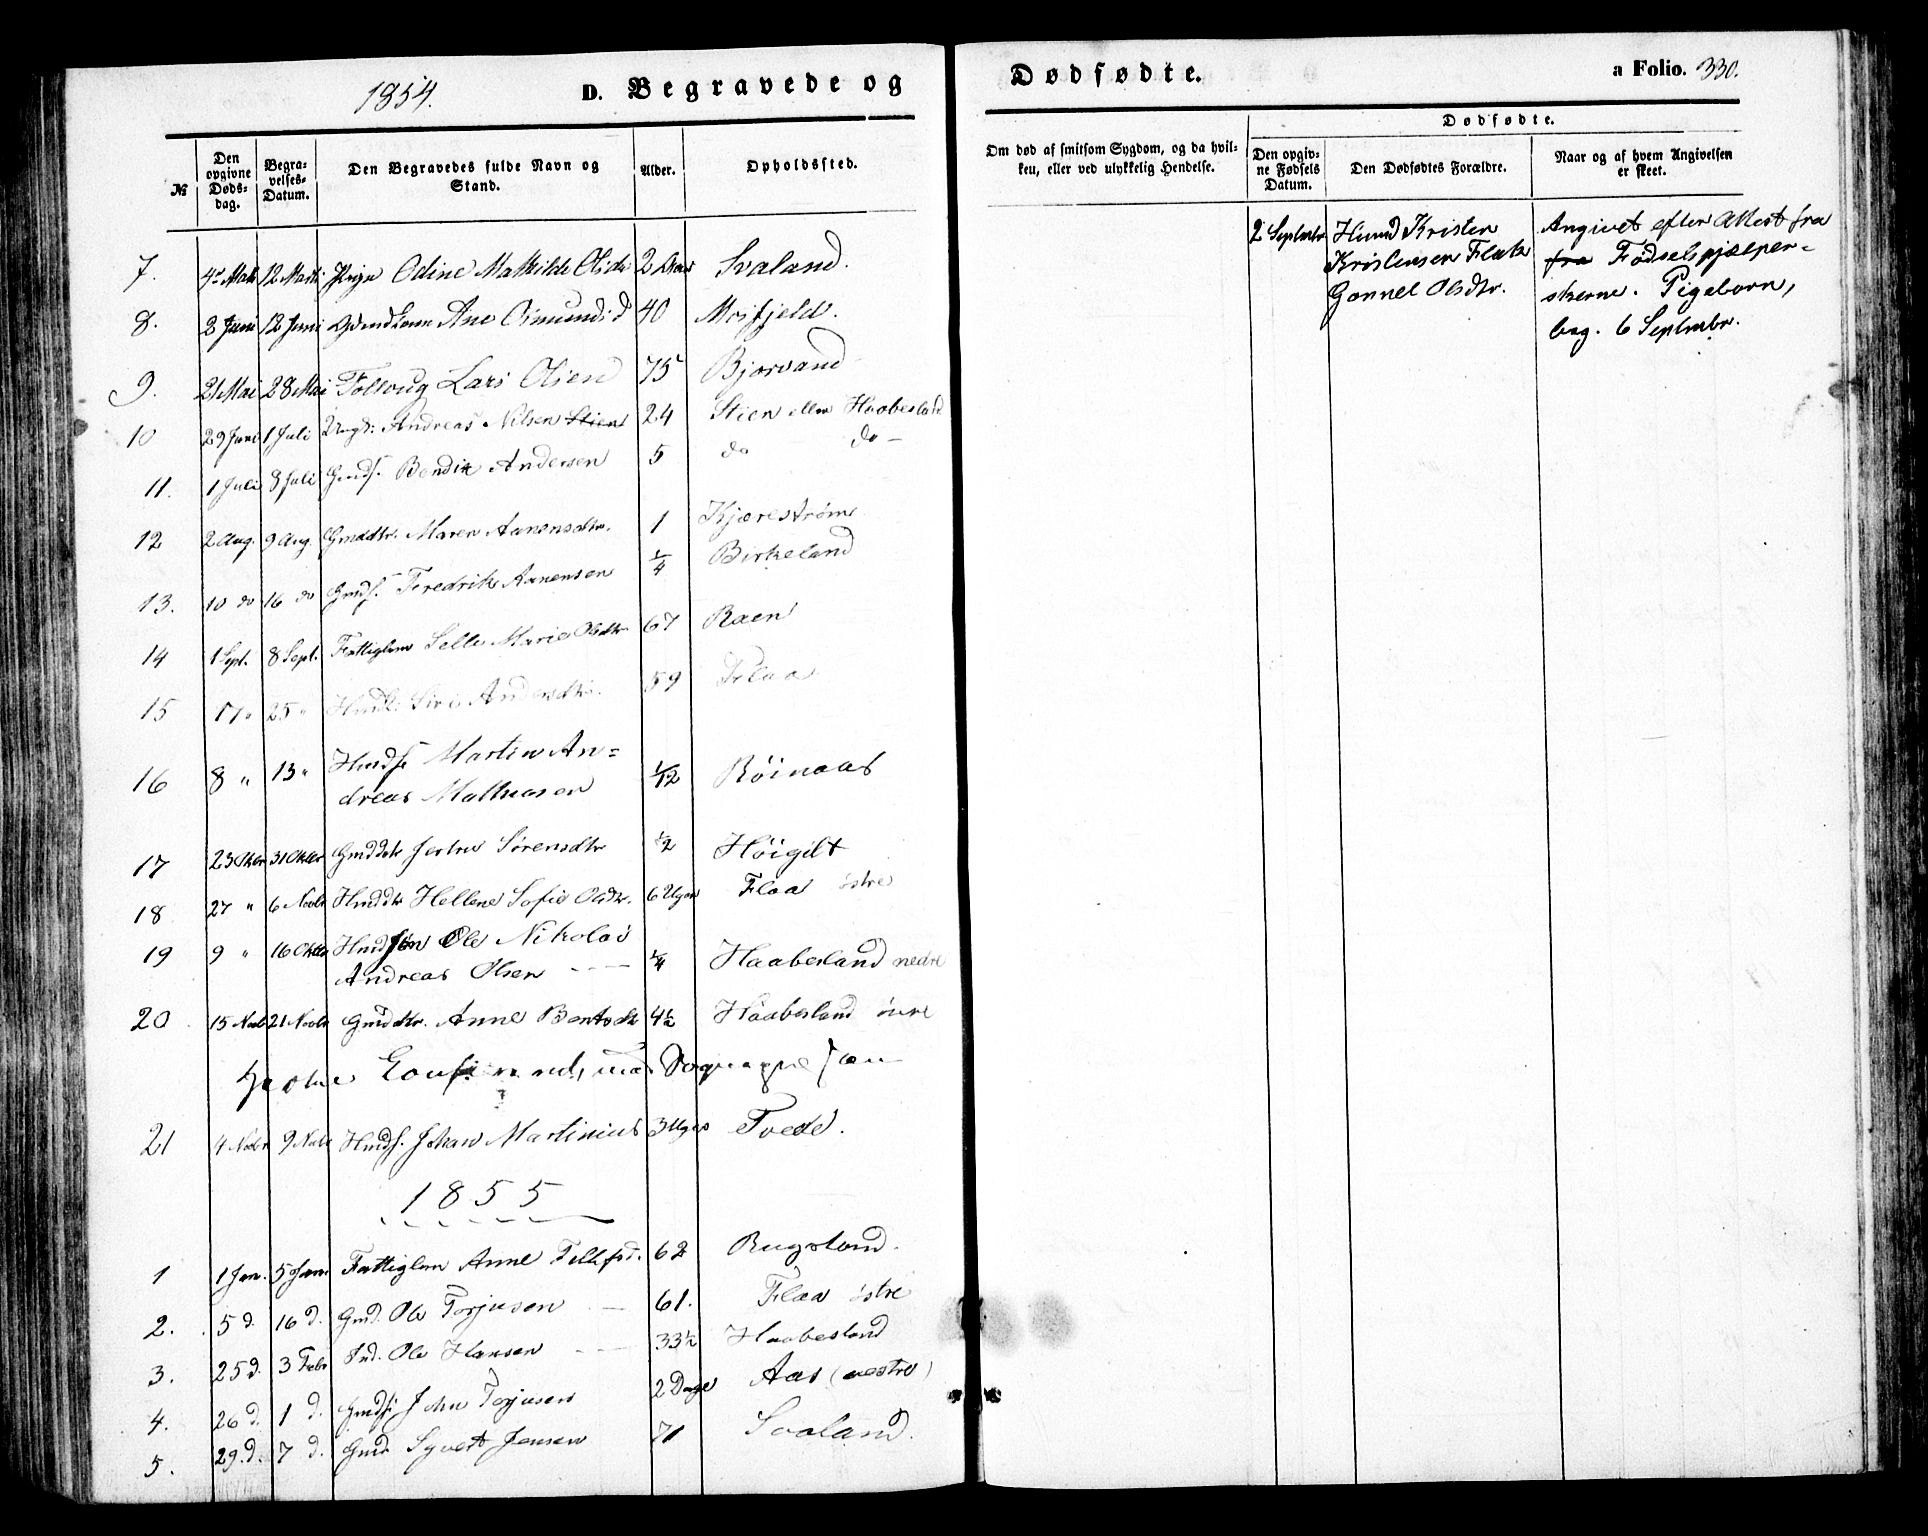 1854. D. Begravede og
Dødfødte. a Folio. 330.
№
Den opgivne Døds-dag.
Begra-velses-Datum.
Den Begravedes fulde Navn og Stand.
Alder.
Opholdssted.
Om død af smitsom Sygdom, og da hvil-
ken, eller ved ulykkelig Hendelse.
Dødfødte.
Den opgiv-ne Fødsels Datum.
Den Dødfødtes Forældre.
Naar og af hvem Angivelsen er skeet.
7. 12 Marti Pige Odine Mathilde Olsdr 2 Svaland.
8. 2 Juni 12 Juni Ane 40 Mosfjeld.
9. 21 Mai 28 Mai Lars Olsen 75 Bjorvand
10 29 Juni 1 Juli Ungk: Andreas Nilsen Stien 24 Stien eller Haabesland
11. 1 Juli 8 Juli Gmds. Bendix Andersen 5 do do
12 2 Aug. 9 Aug. Gmddtr. Maren Aanensdtr. 1 Kjærestrøm
13. 10 do 16 do Gmds. Fredrik Aanensen 1/4 Birkeland
14 1 Sept. 8 Sept. Fattiglem Marie Olsdtr 67 Raen
15 17 " 25 " Siri Andersdtr. 59 Flaa
16 8 " 13 " Husds Martin An=
dreas Mathiasen 1/12 Röinaas
17 23 Oktbr 31 Oktbr Gmddtr Sørensdtr 1/2 Høigilt
18 27 " 6 Novbr Husddtr Hellene Sofie Olsdtr. 6 Uger Flaa østre
19 9 " 16 Oktbr Husdsøn Ole Nikolai
Andreas Olsen 1/4 Haabesland nedre
20 15 Novbr 21 Novbr Gmddtr. Anne Bentsdtr 4 1/2 Haabesland øvre
21 4 Novbr 9 Novbr Husds. Johan Martinius 3 Uger Tvede.
1855
1 1 Jan. 5 Jan Fattiglem Anne Tellefsd. 62 Rugsland.
2. 5 d. 16 d. Gmd. Ole Torjusen 61. Flaa østre
3. 25 d. 3 Febr Ind. Ole Hansen 33 1/2 Haabesland
4. 26 d. 1 d. Gmds John Torjusen 2 Dage Aas (vestre)
5. 29. d. 7 d. Gmd. Syvert Jensen 71 Svaland.
2 Septmbr
Husmd Kristen
Kristensen Flaa
Gonnel Olsdtr.
Angivet efter Attest fra
fra Fødselshjælper-
skerne. Pigebarn,
beg. 6 Septmbr.